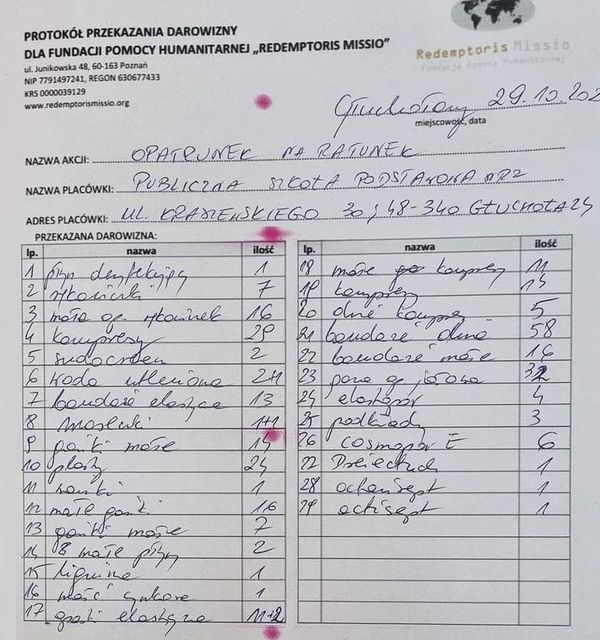 PROTOKÓŁ PRZEKAZANIA DAROWIZNY
DLA FUNDACJI POMOCY HUMANITARNEJ „REDEMPTORIS MISSIO"
ul. Junikowska 48, 60-163 Poznań
NIP 7791497241, REGON 630677433
KRS 0000039129
www.redemptorismissio.org
Redemptoris Missio
Fundacja Pomocy Humanitarnej
Głuchołazy 29.10.202
miejscowość, data
NAZWA AKCJI: OPATRUNEK NA RATUNEK
NAZWA PLACÓWKI: PUBLICZNA SZKOŁA PODSTAWOWA NR 2
ADRES PLACÓWKI: UL. KRASZEWSKIEGO 30, 48-340 GŁUCHOŁAZY
PRZEKAZANA DAROWIZNA:
lp. nazwa ilość
1 płyn dezynfekujący 1
2 rękawiczki 7
3 małe op. rękawiczek 16
4 kompresy 29
5 sudocrem 2
6 woda utleniona 24
7 bandaże elastyczne 13
8 maseczki
9 gaziki małe
10 plastry 24
11 1
12 małe gaziki 16
13 małe 7
14 8 małe płyny 2
15 lignina 1
16 maść cynkowa 1
17 elastyczne 11+2
lp. nazwa ilość
18 małe kompresy 11
19 kompresy
20 duże kompresy 5
21 bandaże duże 58
22 bandaże małe 16
23 gaza jałowa 32
24 elastopor 4
25 podkłady 3
26 COSMOPOR E 6
27 1
28 octenisept 1
29 octisept 1